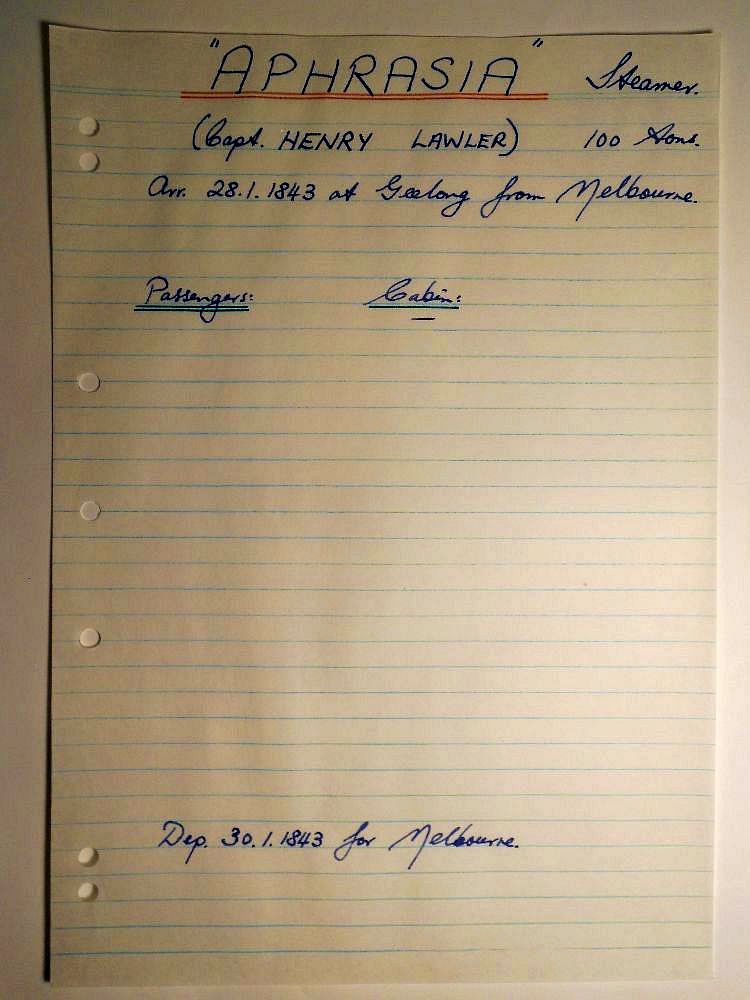 "APHRASIA" Steamer.
(Capt. HENRY LAWLER) 100 tons.
Arr. 28.1.1843 at Geelong from Melbourne.
Passengers: Cabin:
Dep. 30.1.1843 for Melbourne.